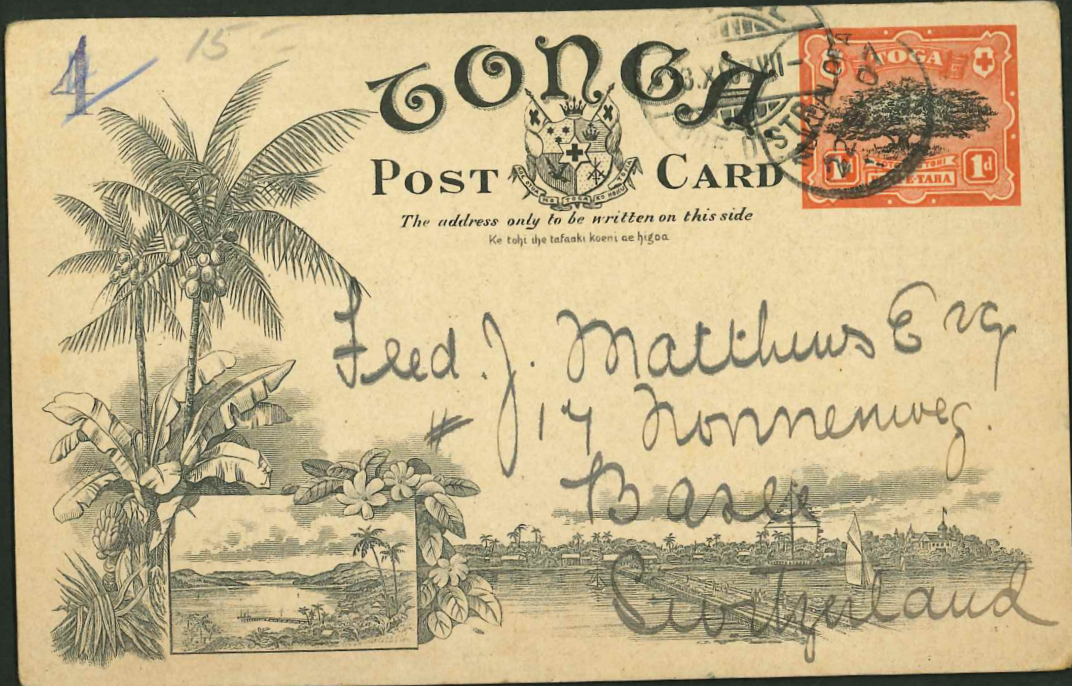 4
15
TONGA
POST CARD
The address only to be written on this side
Ke tohi ihe tafaaki koeni ae higoa
TOGA
1d
NUKUALOFA
Fred. J. Matthews Esq
# 17 Nonnenweg.
Basle
Switzerland